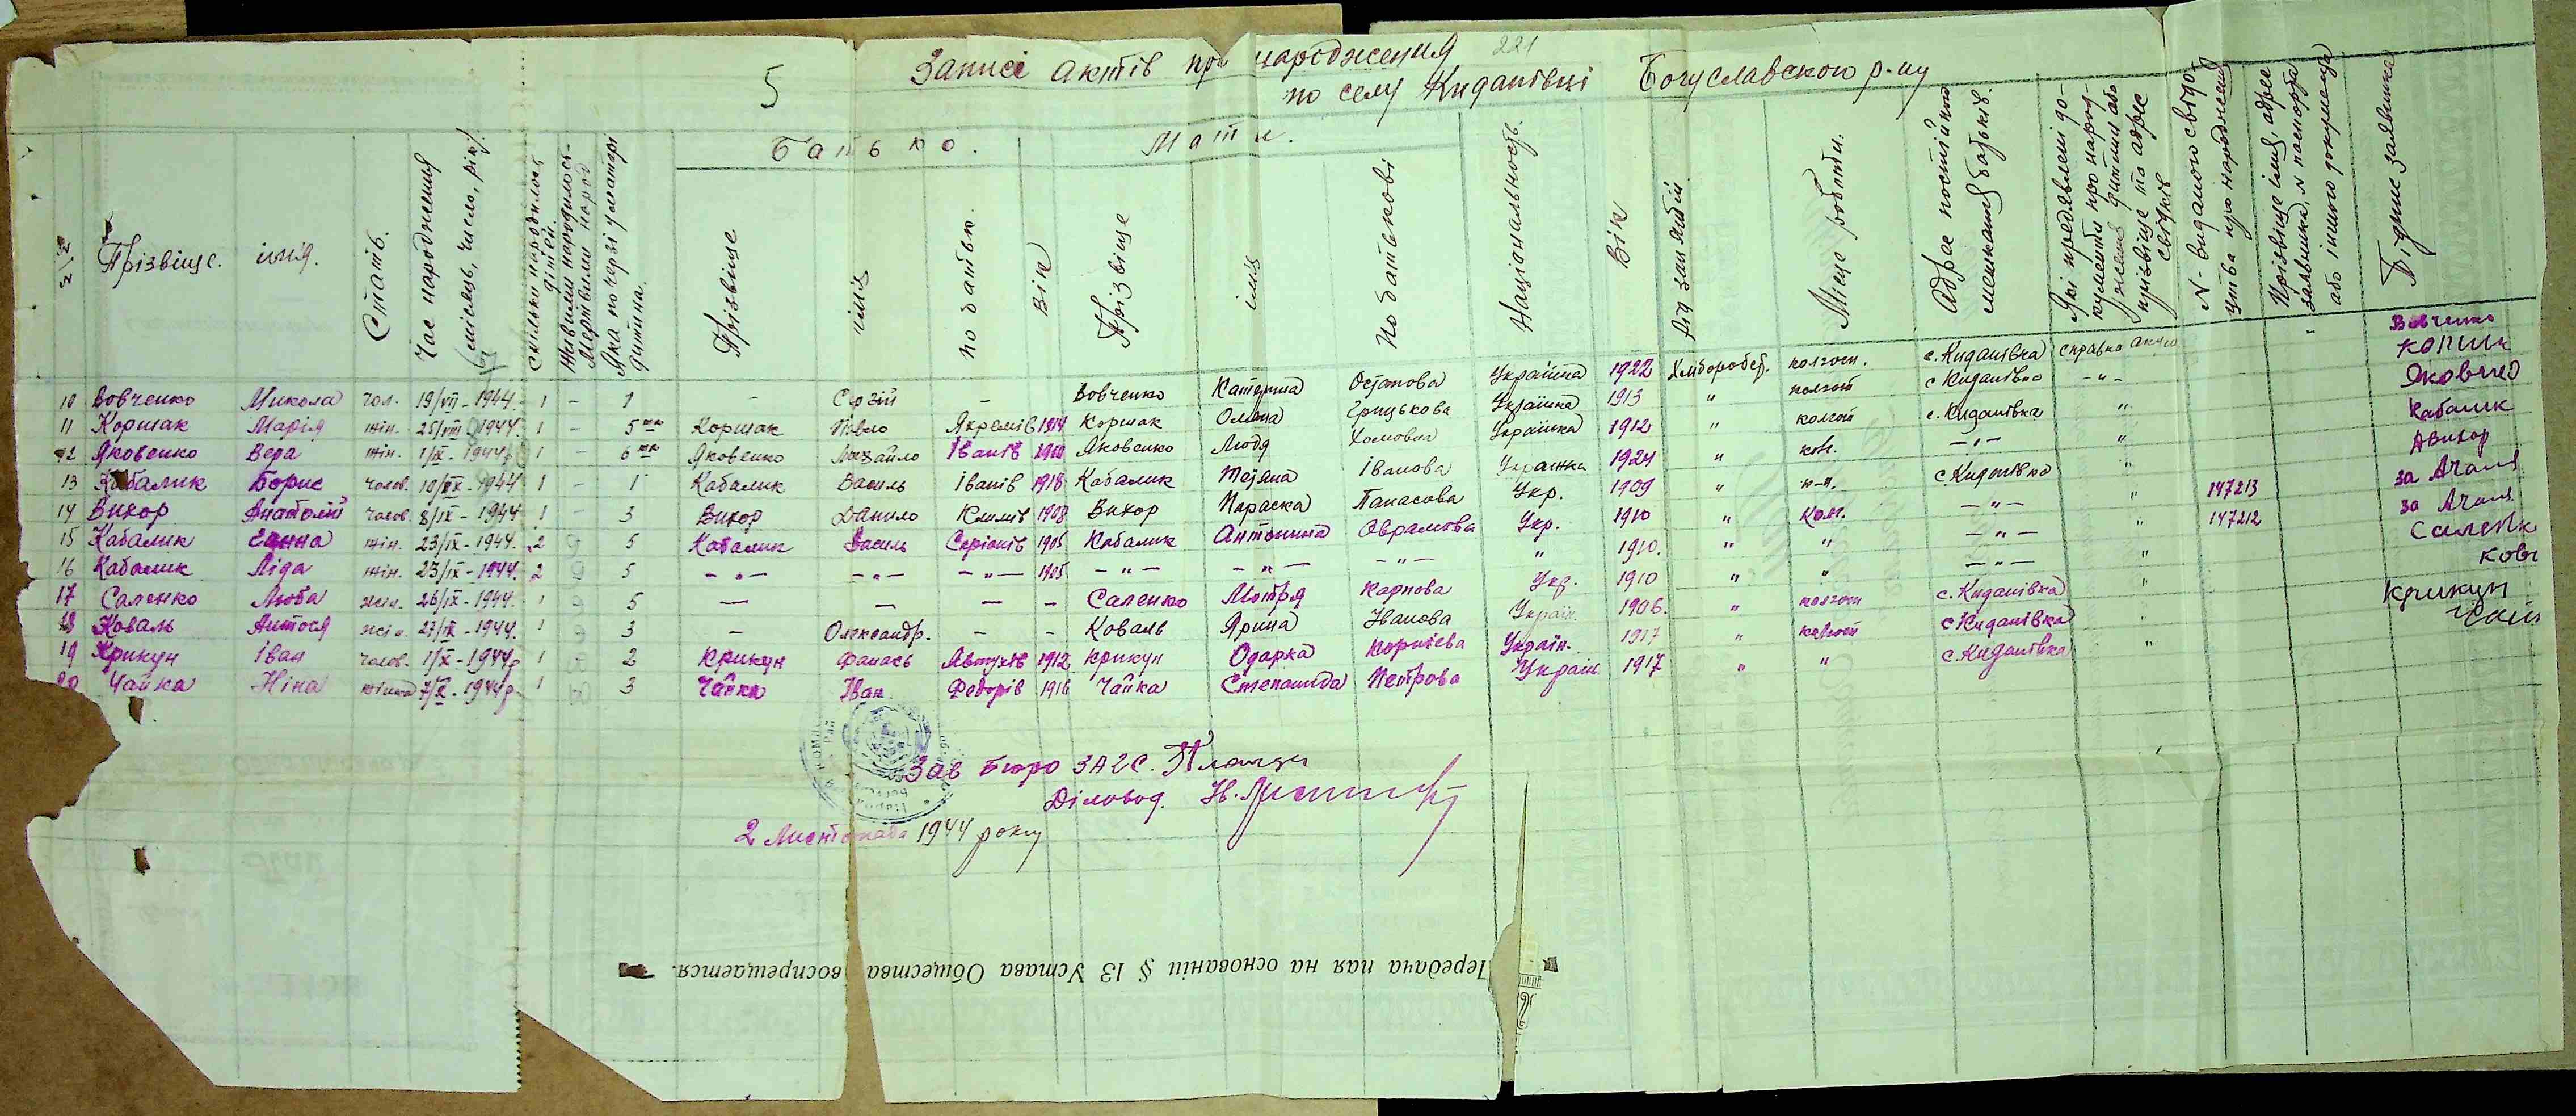 221
5 Записі актів про народження
по селу Киданівці Богуславского р-ну
Батько. Мати.
N N
Прізвище. імя.
Стать.
Час народження (місяць, число, рік).
скільки народилось дітей.
Живими народилось - Мертвими народ
Яка по черзі у матері дитина.
Прізвище
імя
по батьк.
вік
Прізвище
імя
по батькові
Національность.
Вік
Рід занять
Місце роботи.
Адрес постійного мешкання батьків.
Які предявлені документи про народження дитини або прізвище та адрес свідків
N- виданого свідоцтва про народження
Прізвище імя, адрес заявника, N паспорта або іншого документа
Підпис заявника
10 Вовченко Микола чол. 19/VII-1944. 1 - 1 - Сергій - Вовченко Катерина Остапова Українка 1922 Хлібороб. колгосп. с. Киданівка справка Вовченко
11 Коршак Марія жін. 25/VIII-1944. 1 - 5 Коршак Павло Яхремів 1914 Коршак Олена Грицькова Українка 1913 " колгосп с Киданівка -"-
12 Яковенко Вера жін. 1/IX-1944р 1 - 6 Яковенко Михайло Іванів Яковенко Хомовна Українка 1912 " колгосп с. Киданівка "
13 Кабалик Борис чолов. 1944 1 - 1 Кабалик Василь Іванів 1918 Кабалик Тетяна Іванова Українка 1924 " кол. -"- " Кабалик
14 Вихор Анатолій чолов. 8/IX-1944 1 - 3 Вихор Данило Климів 1908 Вихор Параска Панасова Укр. 1909 " к-п. с Киданівка " АВихор
15 Кабалик Ганна жін. 23/IX-1944. 2 5 Кабалик Василь 1905 Кабалик Антонина Оврамова Укр. 1910 " Кол. -"- " 147213 за
16 Кабалик Ліда жін. 23/IX-1944. 2 5 -"- -"- -"- 1905 -"- -"- -"- " 1910. " " -"- " 147212 за
17 Саленко Люба жін. 26/IX-1944. 1 5 - - - - Саленко Мотря Карпова Укр. 1910 " " -"- " Саленк
18 Коваль Антося жін. 27/IX-1944. 1 3 - Олександр. - - Коваль Ярина Іванова Україн. 1906. " колгосп с. Киданівка " Кова
19 Крикун Іван чолов. 1/X-1944р 1 2 Крикун Фанась Явтухів 1912 Крикун Одарка Корніева Україн. 1917 " колгосп с Киданівка " Крикун
20 Чайка Ніна жіноча 7/X-1944р. 1 3 Чайка Іван Федорів 1916 Чайка Степанида Петрова Україн 1917 " " с. Киданівка "
Зав Бюро ЗАГС.
Діловод. Н.
2 Листопада 1944 року
Передача пая на основаніи § 13 Устава Общества воспрещается.